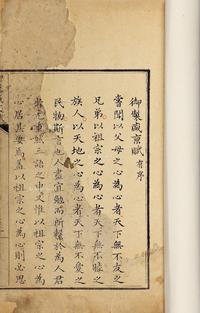 御製盛京賦有序
嘗聞以父母之心為心者天下無不友之
兄弟以祖宗之心為心者天下無不睦之
族人以天地之心為心者天下無不愛之
民物斯言也人盡宜勉而所繫於為人君
者尤重然三語之中又惟以祖宗之心為
心居其要焉蓋以祖宗之心為心則必思